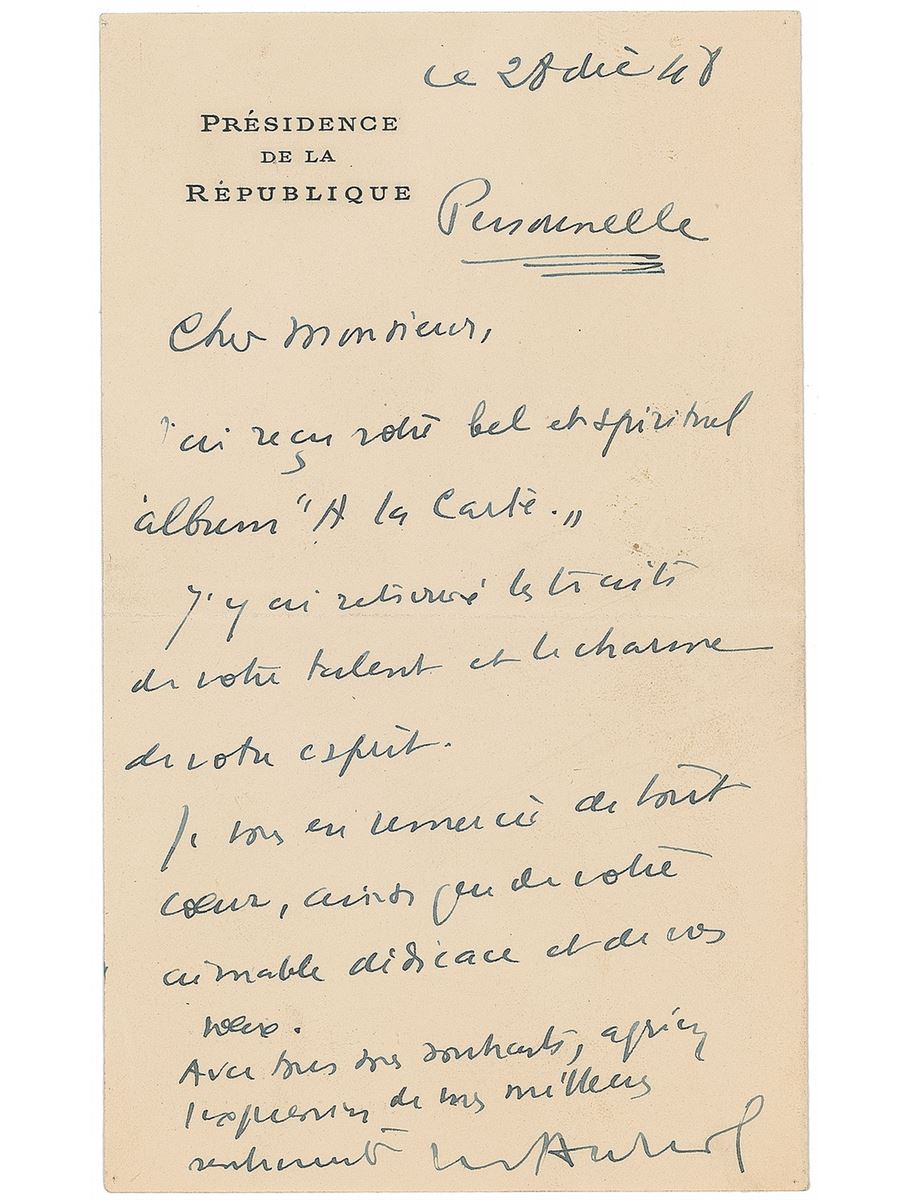 ce 28 déc 48
PRÉSIDENCE
DE LA
RÉPUBLIQUE
Personnelle
Cher Monsieur,
J'ai reçu votre bel et spirituel
album "A la Carte."
J'y ai retrouvé les traits
de votre talent et le charme
de votre esprit.
Je vous en remercie de tout
cœur, ainsi que de votre
aimable dédicace et de vos
vœux.
Avec tous mes souhaits, agréez
l'expression de mes meilleurs
sentiments